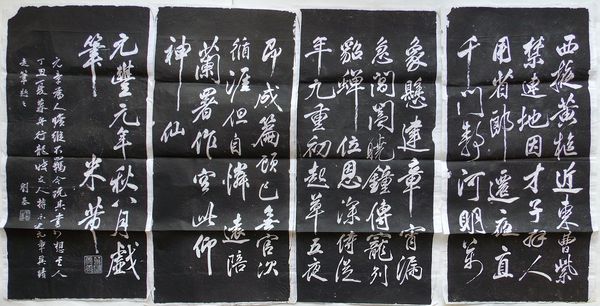 西掖黄樞近東曹紫
禁連地因才子拜人
用省郎遷夜直
千門静河明萬
象懸建章宵漏
急閶闔曉鐘傳寵列
貂蟬位恩深侍從
年九重初起草五夜
即成篇顧己無官次
循涯但自憐遠陪
蘭署作空此仰
神仙
元豐元年秋八月戲
筆 米芾
元章為人不羈其書可想其人
丁丑夏舟行龍城